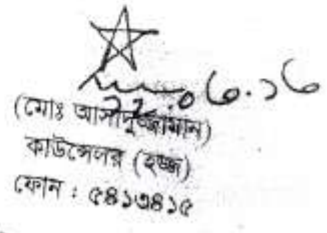 ২২.০৬.১৬
(মোঃ আসাদুজ্জামান)
কাউন্সেলর (হজ্জ)
ফোন : ৫৪১৩৪১৫